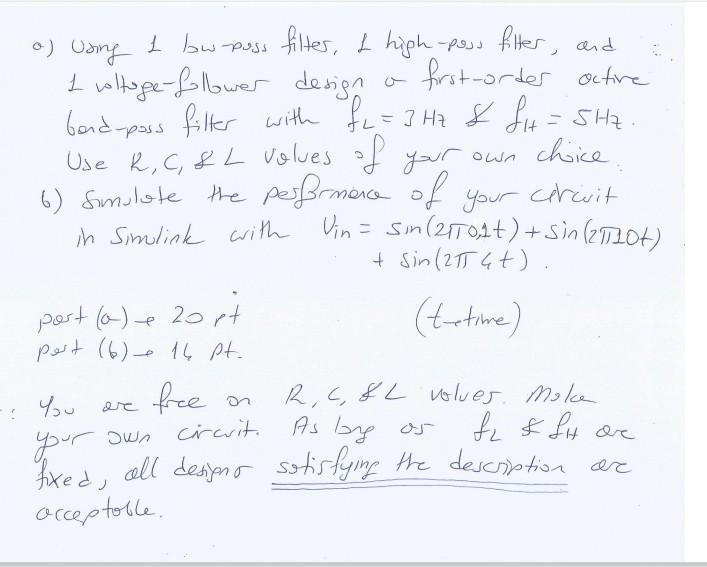 a) Using 1 low-pass filter, 1 high-pass filter, and
1 voltage-follower design a first-order active
band-pass filter with fL = 3 Hz & fH = 5 Hz.
Use R, C, & L values of your own choice.
b) Simulate the performance of your circuit
in Simulink with Vin = sin(2π0,1t) + sin(2π10t)
+ sin(2π4t).
part (a) → 20 pt
(t→time)
part (b) → 14 pt.
You are free on R, C, & L values. Make
your own circuit. As long as fL & fH are
fixed, all designs satisfying the description are
acceptable.